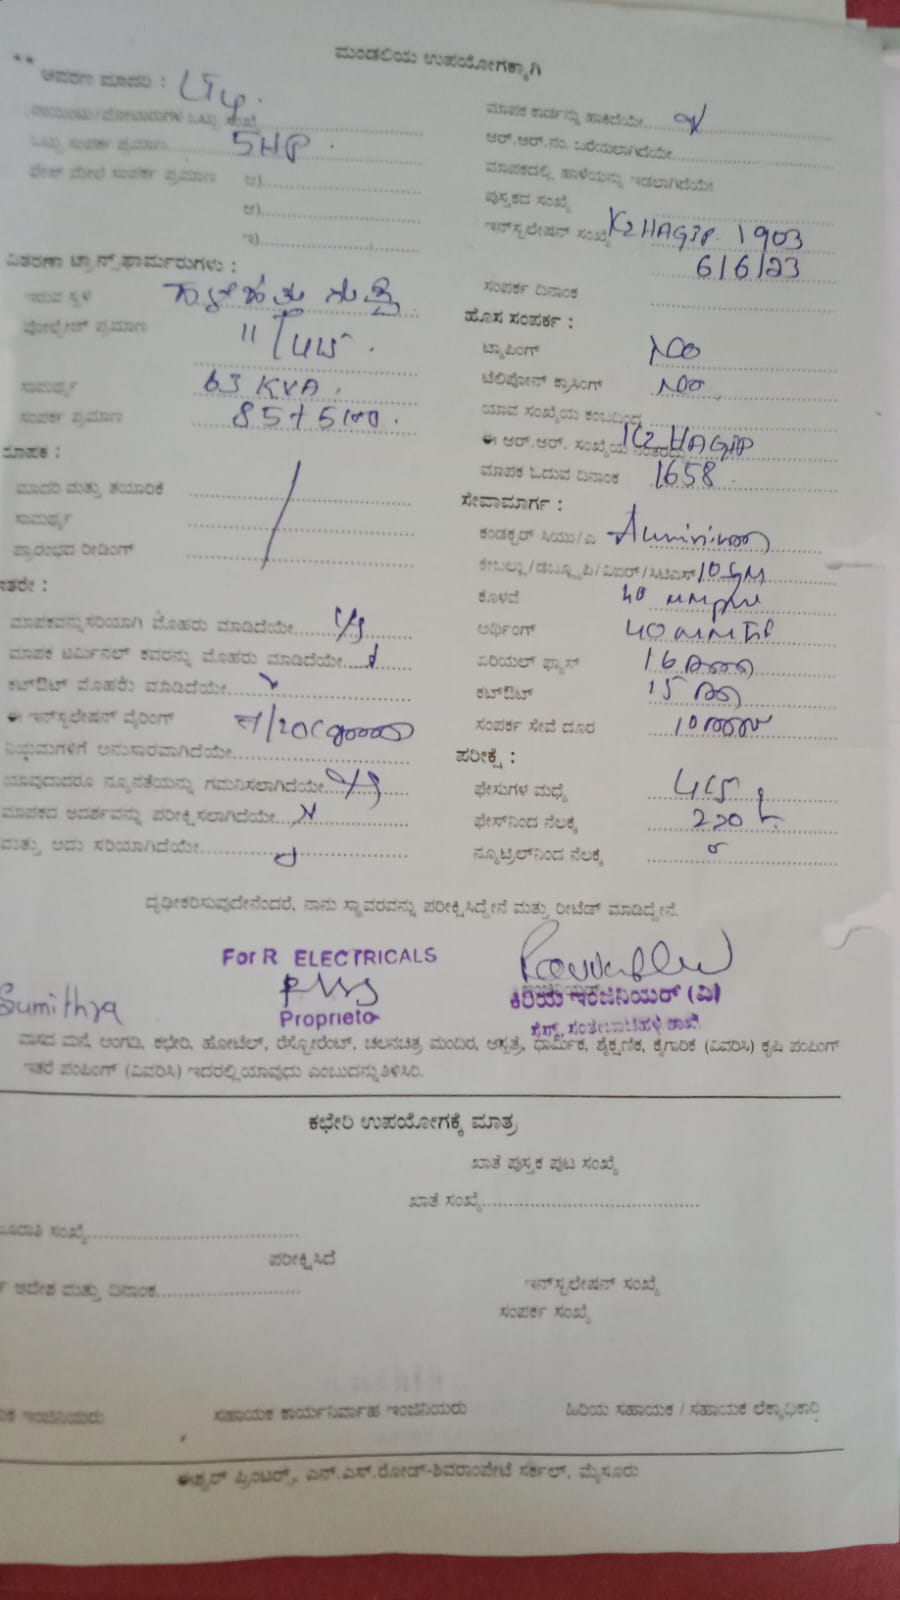 ಮಂಡಲಿಯ ಉಪಯೋಗಕ್ಕಾಗಿ
** ಆವರಣ ಮಾದರಿ :
ಒಟ್ಟು ಸಂಪರ್ಕ ಪ್ರಮಾಣ 5HP
ಫೇಸ್ ಮೇಲೆ ಸಂಪರ್ಕ ಪ್ರಮಾಣ ಅ)
ಆ)
ಇ)
ವಿತರಣಾ ಟ್ರಾನ್ಸ್‌ಫಾರ್ಮರುಗಳು :
ಇರುವ ಸ್ಥಳ
ವೋಲ್ಟೇಜ್ ಪ್ರಮಾಣ 11/415
ಸಾಮರ್ಥ್ಯ 63 KVA
ಸಂಪರ್ಕ ಪ್ರಮಾಣ 85+5
ಮಾಪಕ :
ಮಾದರಿ ಮತ್ತು ತಯಾರಿಕೆ
ಸಾಮರ್ಥ್ಯ
ಪ್ರಾರಂಭದ ರೀಡಿಂಗ್
ಇತರೇ :
ಮಾಪಕವನ್ನು ಸರಿಯಾಗಿ ಮೊಹರು ಮಾಡಿದೆಯೇ
ಮಾಪಕ ಟರ್ಮಿನಲ್ ಕವರನ್ನು ಮೊಹರು ಮಾಡಿದೆಯೇ
ಕಟ್‌ಔಟ್ ಮೊಹರು ಮಾಡಿದೆಯೇ
ಈ ಇನ್‌ಸ್ಟಲೇಷನ್ ವೈರಿಂಗ್
ನಿಯಮಗಳಿಗೆ ಅನುಸಾರವಾಗಿದೆಯೇ
ಯಾವುದಾದರೂ ನ್ಯೂನತೆಯನ್ನು ಗಮನಿಸಲಾಗಿದೆಯೇ
ಮಾಪಕದ ಆದರ್ಶವನ್ನು ಪರೀಕ್ಷಿಸಲಾಗಿದೆಯೇ
ಮತ್ತು ಅದು ಸರಿಯಾಗಿದೆಯೇ
ಮಾಪಕ ಕಾರ್ಡನ್ನು ಹಾಕಿದೆಯೇ
ಆರ್.ಆರ್.ನಂ. ಬರೆಯಲಾಗಿದೆಯೇ
ಮಾಪಕದಲ್ಲಿ ಹಾಳೆಯನ್ನು ಇಡಲಾಗಿದೆಯೇ
ಪುಸ್ತಕದ ಸಂಖ್ಯೆ
ಇನ್‌ಸ್ಟಲೇಷನ್ ಸಂಖ್ಯೆ K2HAGIP 1903
6/6/23
ಸಂಪರ್ಕ ದಿನಾಂಕ
ಹೊಸ ಸಂಪರ್ಕ :
ಟ್ಯಾಪಿಂಗ್ NO
ಟೆಲಿಫೋನ್ ಕ್ರಾಸಿಂಗ್ NO
ಯಾವ ಸಂಖ್ಯೆಯ ಕಂಬದಿಂದ
ಈ ಆರ್.ಆರ್. ಸಂಖ್ಯೆಯ ನಂತರದ್ದು K2 HAGIP
ಮಾಪಕ ಓದುವ ದಿನಾಂಕ 1658
ಸೇವಾಮಾರ್ಗ :
ಕಂಡಕ್ಟರ್ ಸಿಯು/ಎ
ಕೇಬಲ್ಲು/ಡಬ್ಲ್ಯೂಪಿ/ವಿಐಆರ್/ಸಿಟಿಎಸ್ 10 SQM
ಕೊಳವೆ 40
ಅರ್ಥಿಂಗ್ 40
ಏರಿಯಲ್ ಫ್ಯೂಸ್ 16
ಕಟ್‌ಔಟ್ 15
ಸಂಪರ್ಕ ಸೇವೆ ದೂರ 10
ಪರೀಕ್ಷೆ :
ಫೇಸುಗಳ ಮಧ್ಯೆ 415
ಫೇಸ್‌ನಿಂದ ನೆಲಕ್ಕೆ 220
ನ್ಯೂಟ್ರಲ್‌ನಿಂದ ನೆಲಕ್ಕೆ
ದೃಢೀಕರಿಸುವುದೇನೆಂದರೆ, ನಾನು ಸ್ಥಾವರವನ್ನು ಪರೀಕ್ಷಿಸಿದ್ದೇನೆ ಮತ್ತು ರೀಟೆಡ್ ಮಾಡಿದ್ದೇನೆ.
For R ELECTRICALS
Proprietor
Sumithra
ಕಿರಿಯ ಇಂಜಿನಿಯರ್ (ವಿ)
ವಾಸದ ಮನೆ, ಅಂಗಡಿ, ಕಛೇರಿ, ಹೋಟೆಲ್, ರೆಸ್ಟೋರೆಂಟ್, ಚಲನಚಿತ್ರ ಮಂದಿರ, ಆಸ್ಪತ್ರೆ, ಧಾರ್ಮಿಕ, ಶೈಕ್ಷಣಿಕ, ಕೈಗಾರಿಕೆ (ವಿವರಿಸಿ) ಕೃಷಿ ಪಂಪಿಂಗ್
ಇತರೆ ಪಂಪಿಂಗ್ (ವಿವರಿಸಿ) ಇದರಲ್ಲಿ ಯಾವುದು ಎಂಬುದನ್ನು ತಿಳಿಸಿರಿ.
ಕಛೇರಿ ಉಪಯೋಗಕ್ಕೆ ಮಾತ್ರ
ಖಾತೆ ಪುಸ್ತಕ ಪುಟ ಸಂಖ್ಯೆ
ಖಾತೆ ಸಂಖ್ಯೆ
ಸಂಖ್ಯೆ
ಪರೀಕ್ಷಿಸಿದೆ
ಆದೇಶ ಮತ್ತು ದಿನಾಂಕ
ಇನ್‌ಸ್ಟಲೇಷನ್ ಸಂಖ್ಯೆ
ಸಂಪರ್ಕ ಸಂಖ್ಯೆ
ಇಂಜಿನಿಯರು ಸಹಾಯಕ ಕಾರ್ಯನಿರ್ವಾಹ ಇಂಜಿನಿಯರು ಹಿರಿಯ ಸಹಾಯಕ / ಸಹಾಯಕ ಲೆಕ್ಕಾಧಿಕಾರಿ
ಈಶ್ವರ್ ಪ್ರಿಂಟರ್ಸ್, ಎನ್.ಎಸ್.ರೋಡ್-ಶಿವರಾಂಪೇಟೆ ಸರ್ಕಲ್, ಮೈಸೂರು